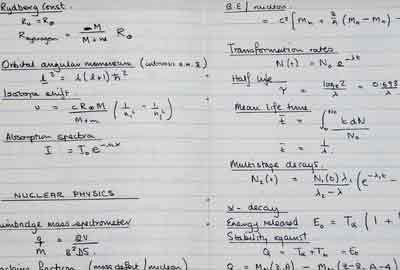 Rydberg Const.
R₀ = R∞
R_Hydrogen = ∞M / (M+m) R∞
Orbital angular momentum (intrinsic a.m. s)
l² = l(l+1)ħ²
Isotope shift.
ν = cR∞M / (M+m) (1/n₁² − 1/n₂²)
Absorption spectra
I = I₀e^−nαx
NUCLEAR PHYSICS
mass spectrometer
q/m = 2V / B²D²
fraction (mass defect / nucleon)
B.E / nucleon
= c² [Mₙ + Z/A (M_H − Mₙ) −
Transformation rates
N(t) = N₀ e^−λt
Half life
τ = logₑ2 / λ = 0.693 / λ
Mean life time
t̄ = ∫₀^N₀ t dN / N₀
t̄ = 1/λ
Multistage decays.
N₂(t) = N₁(0) λ₁ / (λ₂ − λ) (e^−λ₁t −
α - decay
Energy released E₀ = Tα (1 +
Stability against
Q = Tα + T_b = E₀
Q = (Z,A) − (Z-2, A-4)